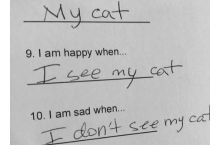 My cat
9. I am happy when...
I see my cat
10. I am sad when...
I don't see my cat